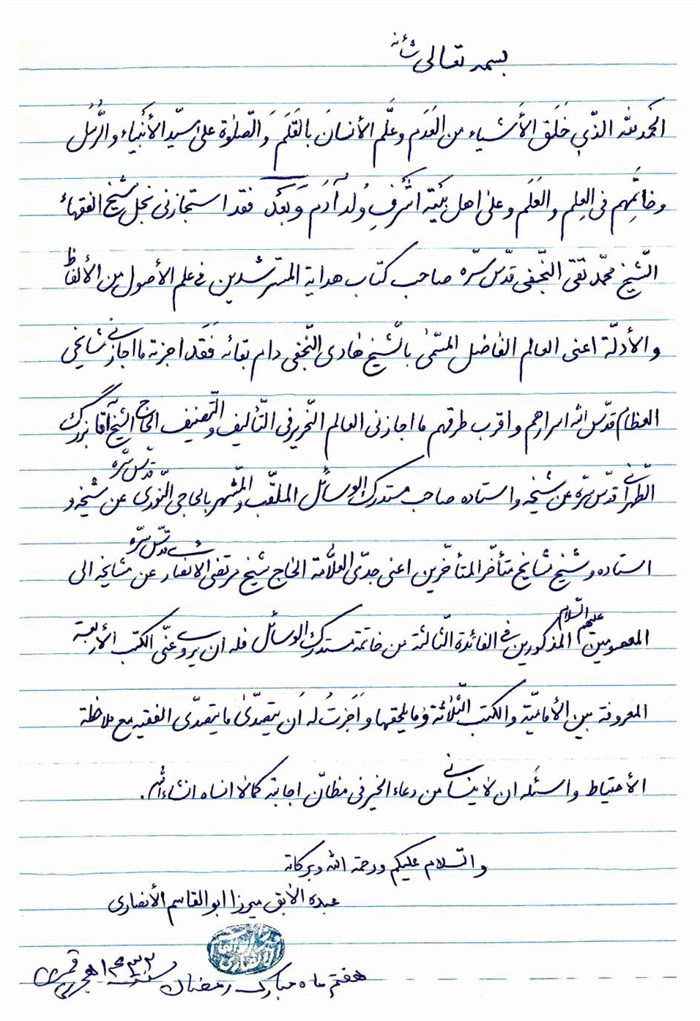 بسمه تعالی شأنه
الحمد لله الذّي خَلَق الأَشياء من العَدَم وعلَّم الأنسانَ بالقَلَم وَالصّلوة علی سیّد الأنبیاء والرُّسُل
وخاتِمِهم في العِلم والعَلَم وعلی اهل بَیته اَشرفِ وُلد آدَم وَبَعدُ فقد استجازنی نجل شیخ الفقهاء
الشّیخ محمّد تقی النّجفی قدّس سرّه صاحب کتاب هدایة المسترشدین في علم الأصول من الألفاظ
والأدلّة اعنی العالم الفاضل المسمّی بالشّیخ هادی النّجفی دام بقائه فَقَد اجزته ما اجازنی مشایخی
العظام قدّس الله اسرارهم واقرب طرقهم ما اجازنی العالم النّحریر فی التّألیف والتّصنیف الحاج الشیخ آقا بزرگ
الطّهرانی قدّس سرّه عن شیخه واستاده صاحب مستدرک الوسائل الملقّب والمشتهر بالحاجی النّوری قدّس سرّه عن شیخه و
استاده وشیخ مشایخ متأخّر المتأخّرین اعنی جدّی العلّامة الحاج شیخ مرتضی الانصاری قدّس سرّه عن مشایخه الی
المعصومین علیهم السّلام المذکورین في الفائدة الثّالثة من خاتمة مستدرک الوسائل فله ان یروی عنّی الکتب الأربعة
المعروفة بین الأمامیّة والکتب الثّلاثة وما یلحقها واَجَزتُ له اَن یتصدّیٰ ما یتصدّی الفقیه مع ملاحظة
الأحتیاط واسئله ان لاینسانی من دعاء الخیر فی مظانّ اجابته کما لا انساه انشاءالله.
والسّلام علیکم ورحمة الله وبرکاته
عبده الآبق میرزا ابوالقاسم الأنصاری
هفتم ماه مبارک رمضان سنه ۱۴۳۲ هجری قمری